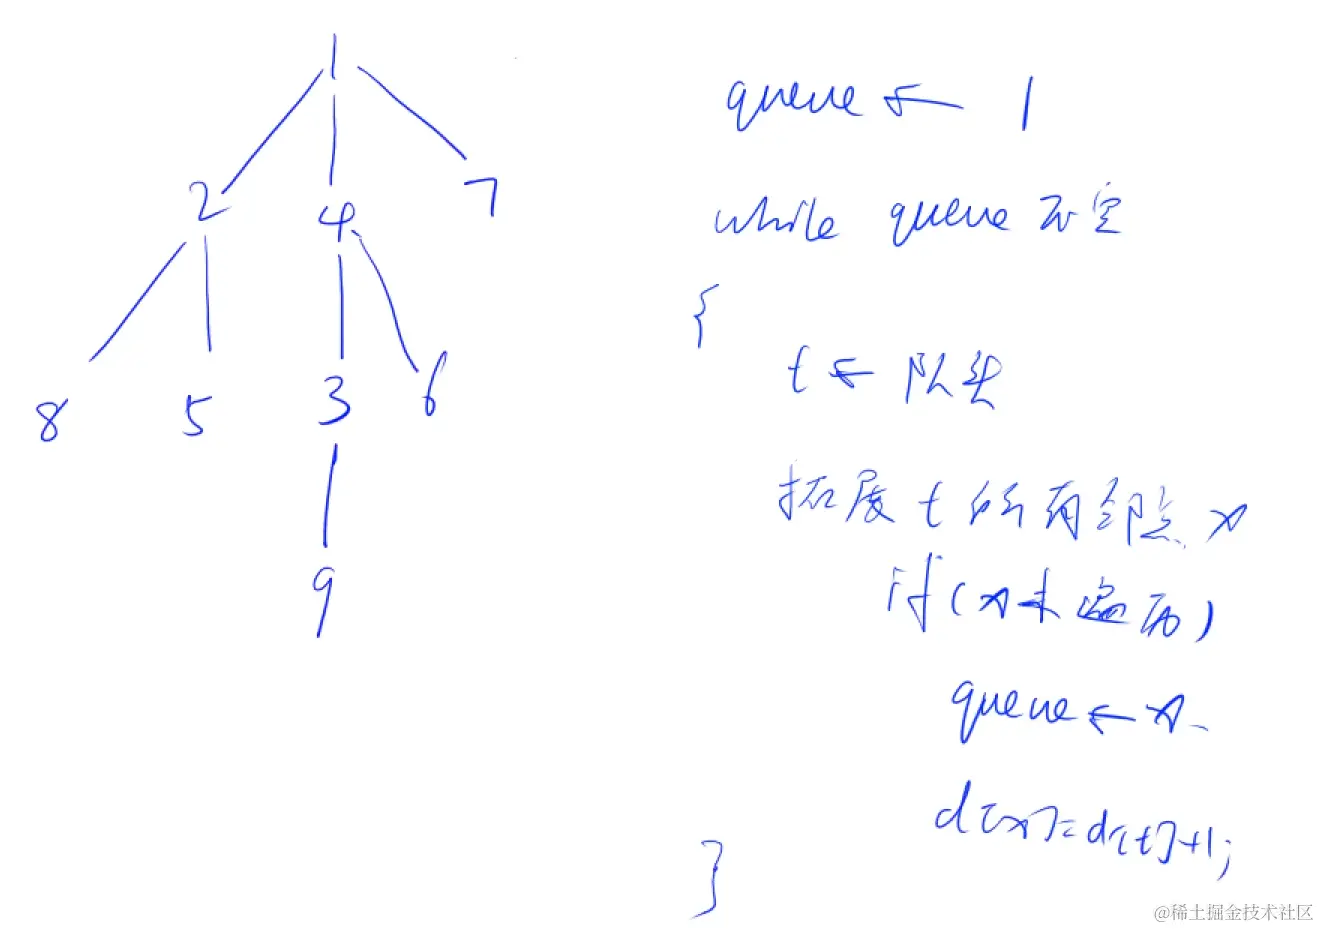 1
2 4 7
8 5 3 6
9
queue ← 1
while queue 不空
{
t ← 队头
拓展 t 的所有邻点 x
if (x未遍历)
queue ← x
d[x]=d[t]+1;
}
@稀土掘金技术社区